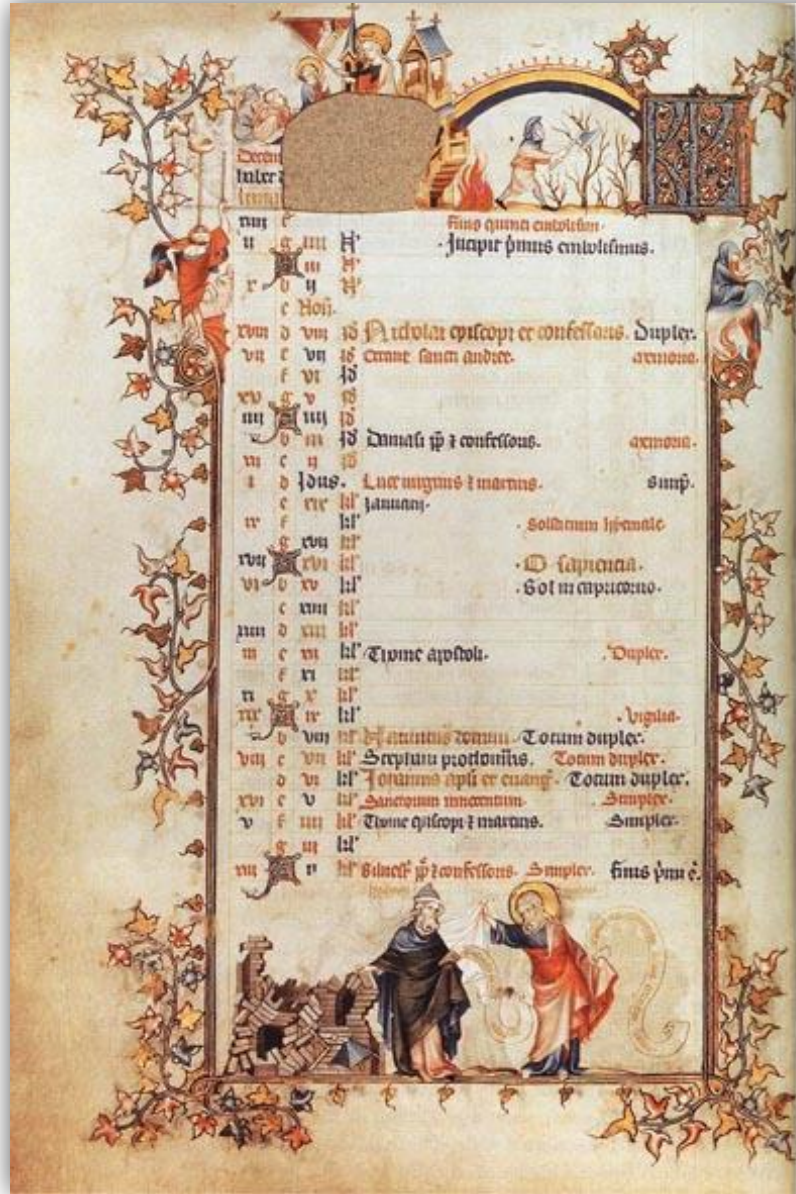 Decem
habet
finis quinti embolism.
ii g iiii N Incipit p̄mus embolismus.
A iii N
x b ii N
c Noñ.
xviii d viii id Nicholai episcopi et confessoris. Dupler.
vii e vii id Octave sancti andree. memoria.
f vi id
xv g v id
iiii A iiii id
b iii id Damasi pp̄ ⁊ confessoris. memoria.
xii c ii id
i d Idus. Lucie virginis ⁊ martiris. simp̄.
e xix kl' Januarii.
ix f kl' Solsticium hyemale.
g xvii kl'
xvii A xvi kl' O sapiencia.
vi b xv kl' Sol in capricorno.
c xiiii kl'
xiiii d xiii kl'
iii e xii kl' Thome apostoli. Dupler.
f xi kl'
xi g x kl'
xix A ix kl' Vigilia.
b viii kl' Totum dupler.
viii c vii kl' Stephani prothom̄ris. Totum dupler.
d vi kl' Johannis apli et euang̃. Totum dupler.
xvi e v kl' Sanctorum innocentum. Simpler.
v f iiii kl' Thome episcopi ⁊ martiris. Simpler.
g iii kl'
xiii A ii kl' Silvest' pp̄ ⁊ confessoris. Simpler. finis p̄mi ē.